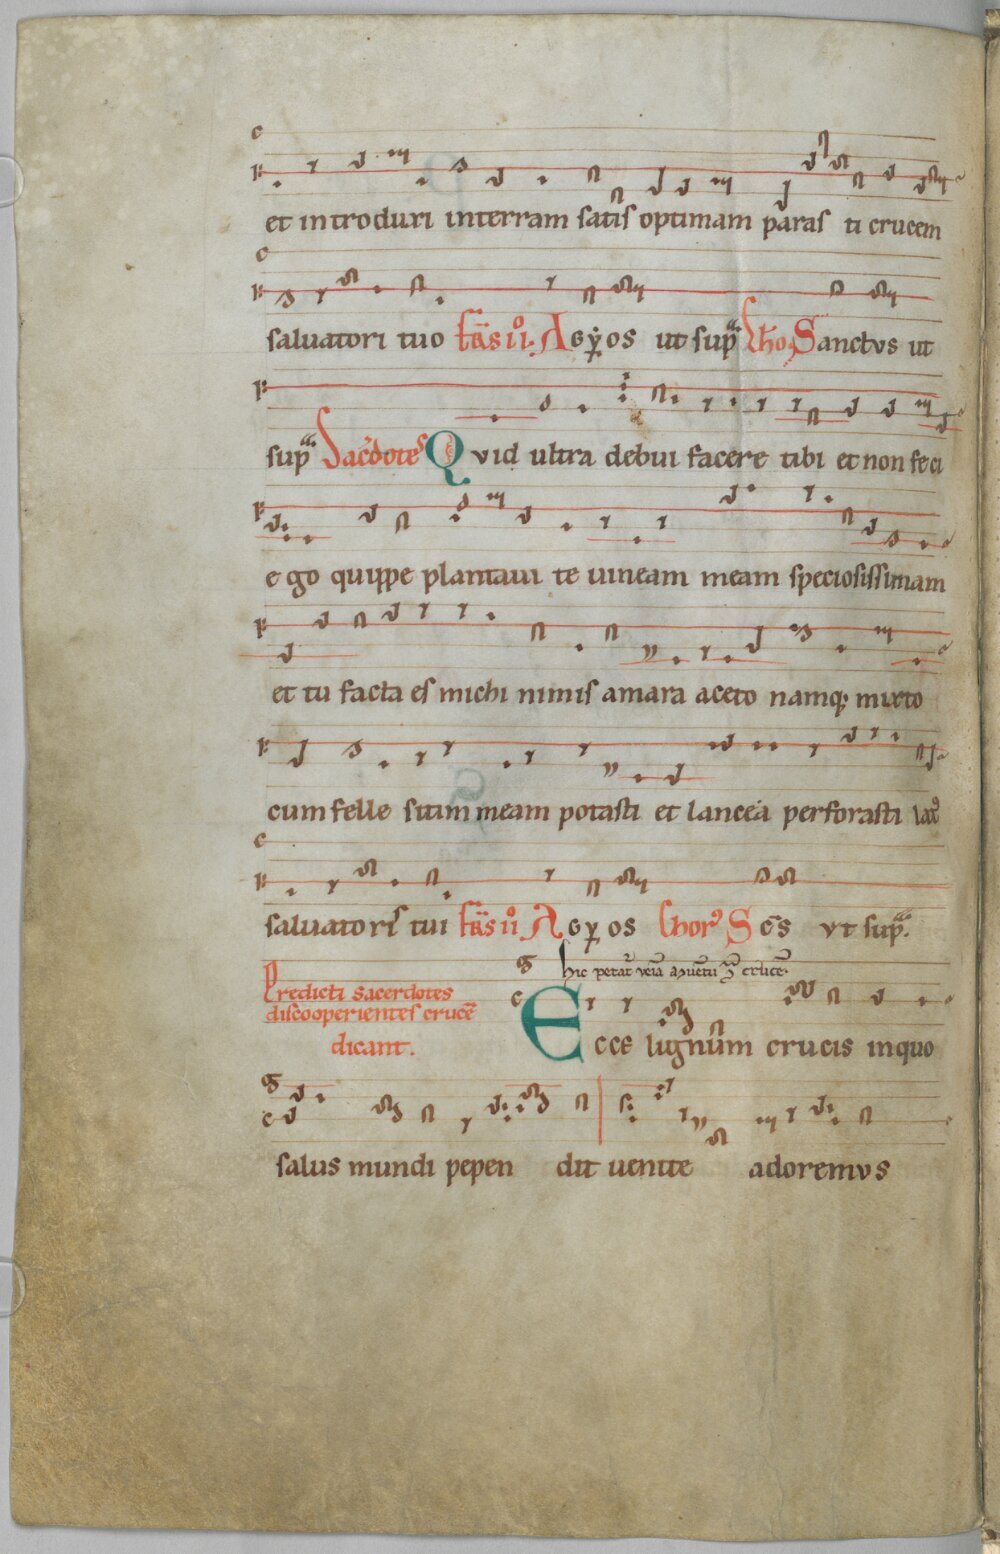 et introduxi interram satis optimam paras ti crucem
saluatori tuo Agẏos ut sup Sanctus ut
sup Sacdotes Quid ultra debui facere tibi et non feci
ego quippe plantaui te uineam meam speciosissimam
et tu facta es michi nimis amara aceto namq; mixto
cum felle sitim meam potasti et lancea perforasti lat
saluatoris tui Agyos Chor Scs ut sup.
hic petat crucē.
Predicti sacerdotes
discooperientes crucē
dicant.
Ecce lignum crucis inquo
salus mundi pepen dit uenite adoremus